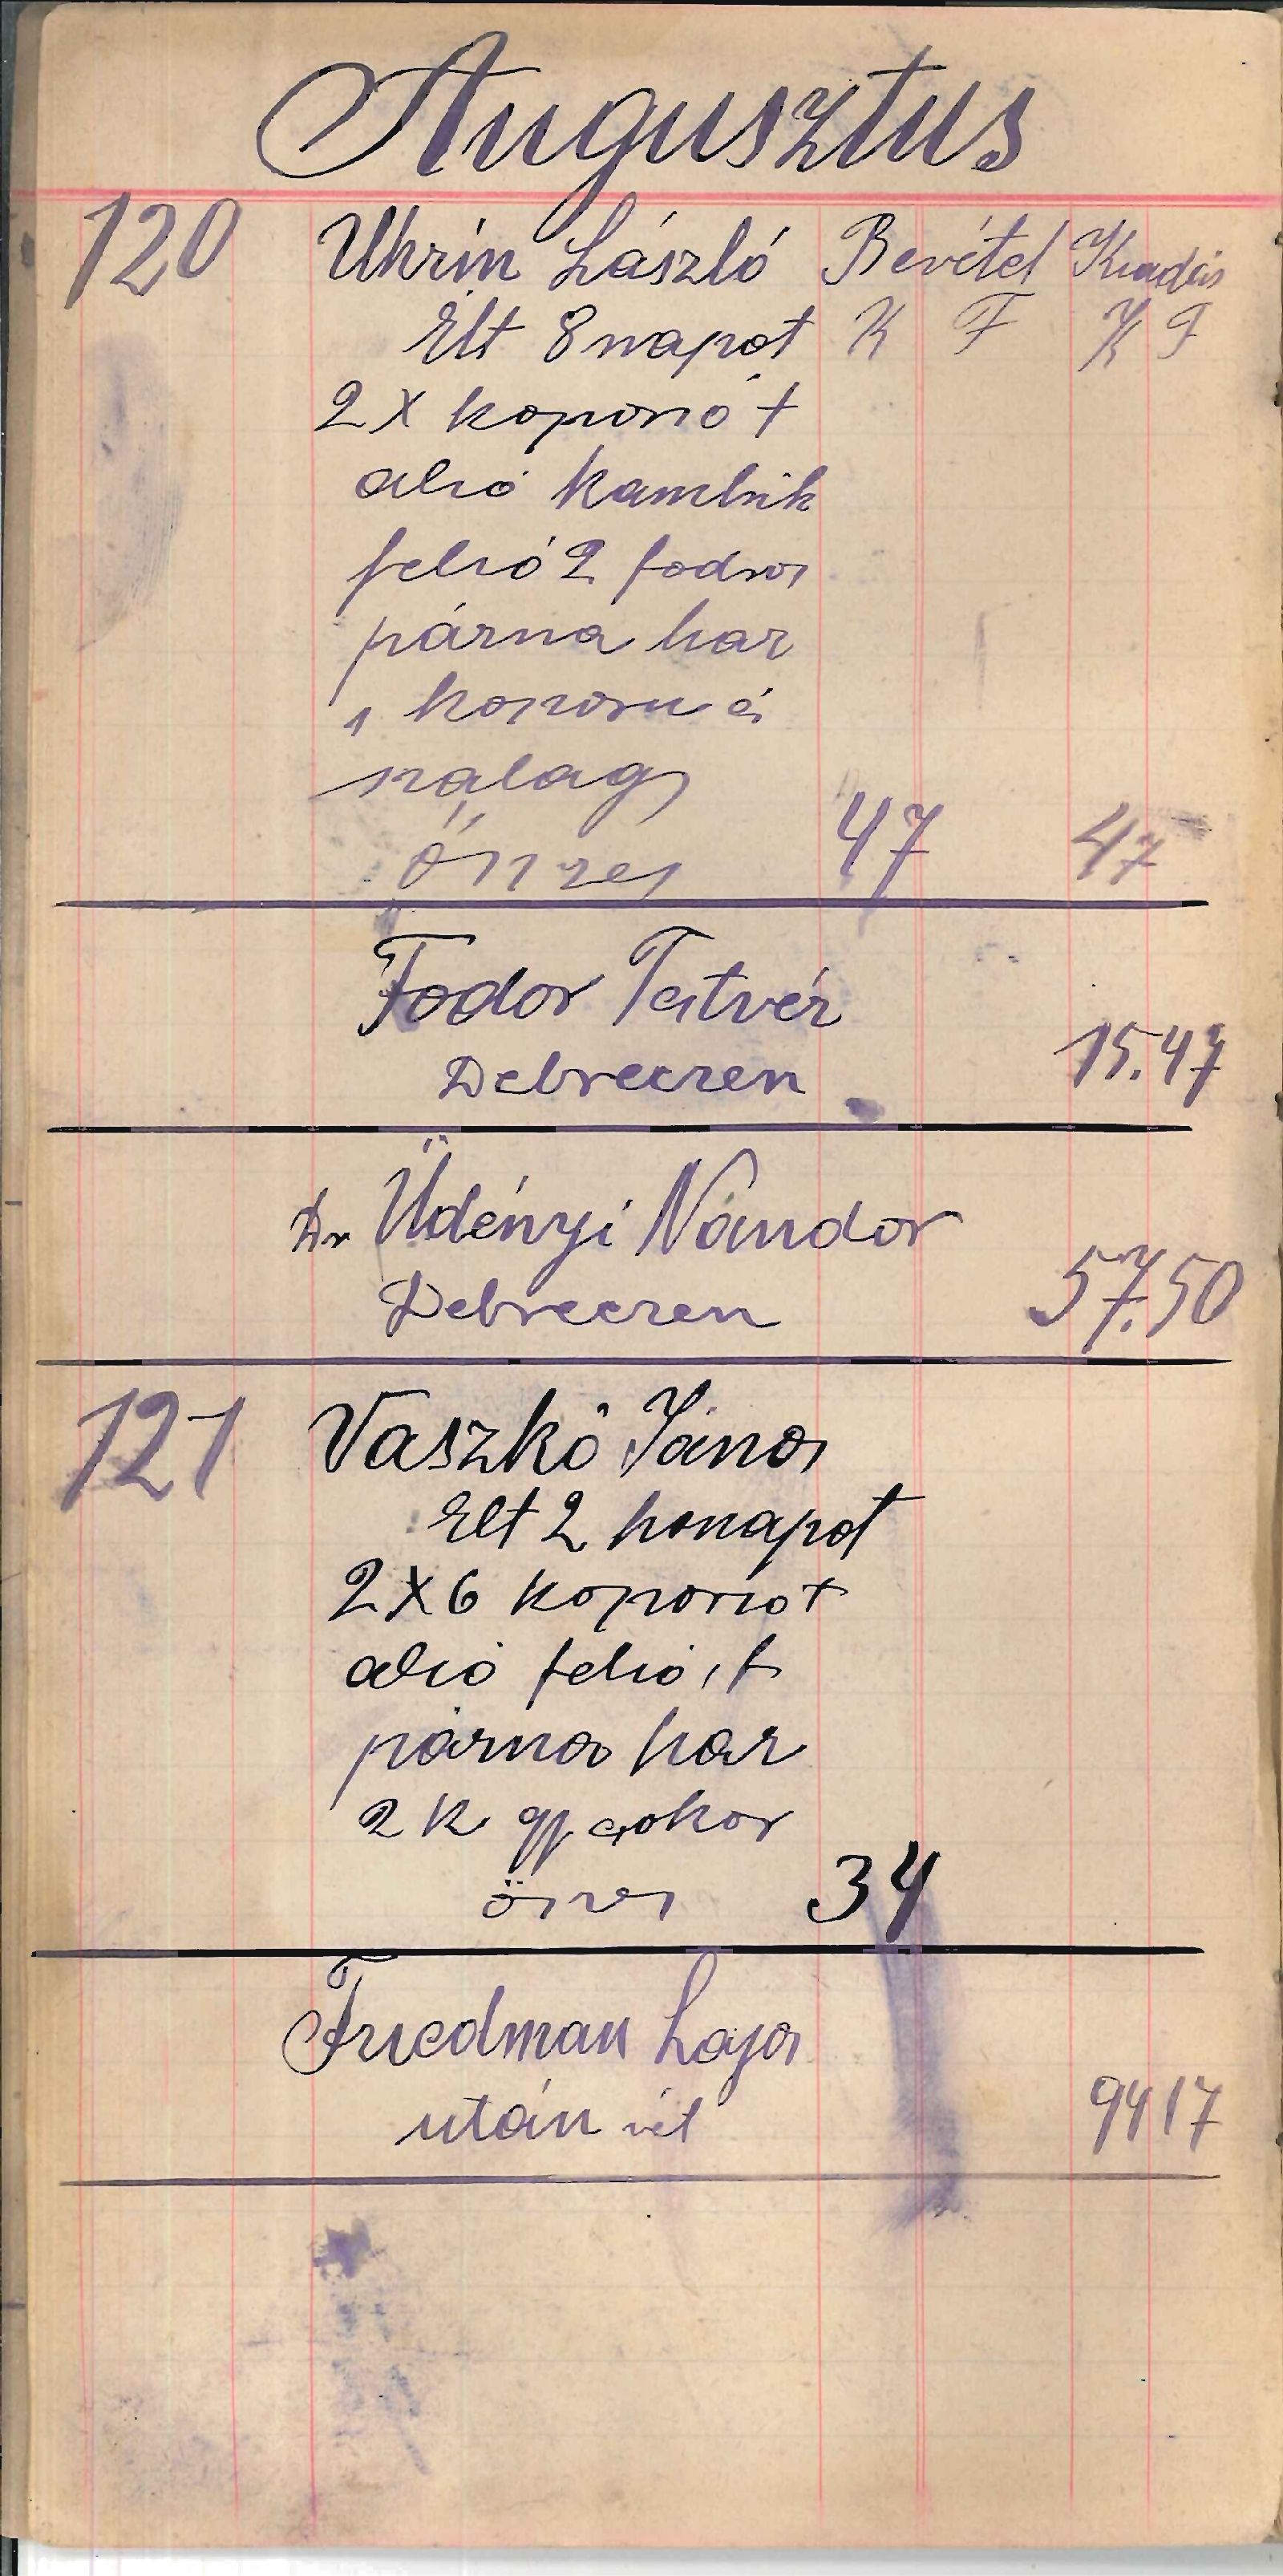 Augusztus
120 Uhrin László Bevétel Kiadás
Élt 8 napot K F K F
2 X koporsót
alsó kambrik
felsó 2 fodros
párna haz
1 koporsu és
szalag
össes 47 47
Fodor Testvér
Debreczen 15.47
Dr Üdényi Nándor
Debreczen 57.50
121 Vaszkó János
Élt 2 honapot
2X6 koporsot
alsó felsó, f
párna haz
2 K gy csokor
öszes 34
Friedman Lajos
után vét 94 17